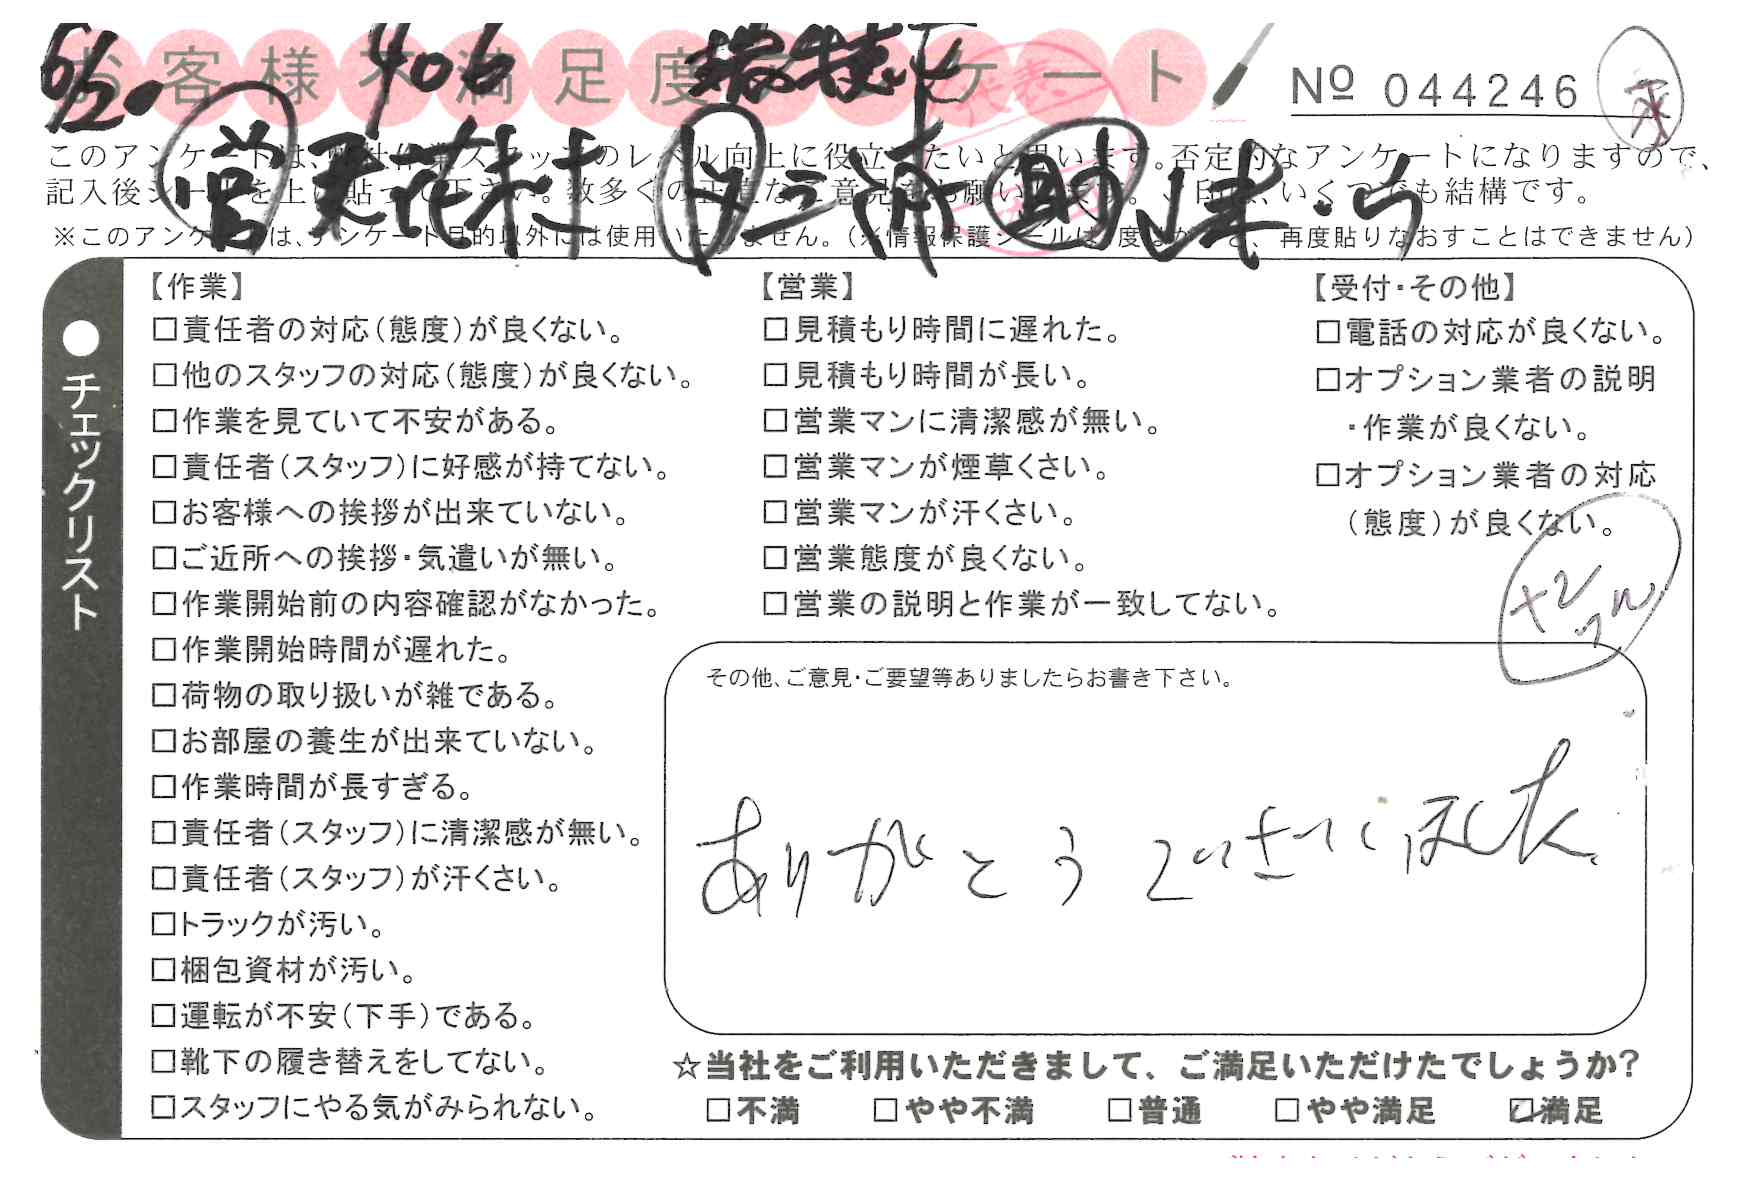 お客様不満足度アンケート
6/20 406
No 044246
このアンケートは、弊社作業スタッフのレベル向上に役立てたいと思います。否定的なアンケートになりますので、
記入後シールを上に貼って下さい。数多くの正直なご意見をお願いします。 いくつでも結構です。
※このアンケートは、アンケート目的以外には使用いたしません。(※情報保護シールは、 再度貼りなおすことはできません)
営 助
●チェックリスト
【作業】
□責任者の対応(態度)が良くない。
□他のスタッフの対応(態度)が良くない。
□作業を見ていて不安がある。
□責任者(スタッフ)に好感が持てない。
□お客様への挨拶が出来ていない。
□ご近所への挨拶・気遣いが無い。
□作業開始前の内容確認がなかった。
□作業開始時間が遅れた。
□荷物の取り扱いが雑である。
□お部屋の養生が出来ていない。
□作業時間が長すぎる。
□責任者(スタッフ)に清潔感が無い。
□責任者(スタッフ)が汗くさい。
□トラックが汚い。
□梱包資材が汚い。
□運転が不安(下手)である。
□靴下の履き替えをしてない。
□スタッフにやる気がみられない。
【営業】
□見積もり時間に遅れた。
□見積もり時間が長い。
□営業マンに清潔感が無い。
□営業マンが煙草くさい。
□営業マンが汗くさい。
□営業態度が良くない。
□営業の説明と作業が一致してない。
【受付・その他】
□電話の対応が良くない。
□オプション業者の説明
・作業が良くない。
□オプション業者の対応
(態度)が良くない。
その他、ご意見・ご要望等ありましたらお書き下さい。
ありがとうございました
☆当社をご利用いただきまして、ご満足いただけたでしょうか?
□不満 □やや不満 □普通 □やや満足 ☑満足